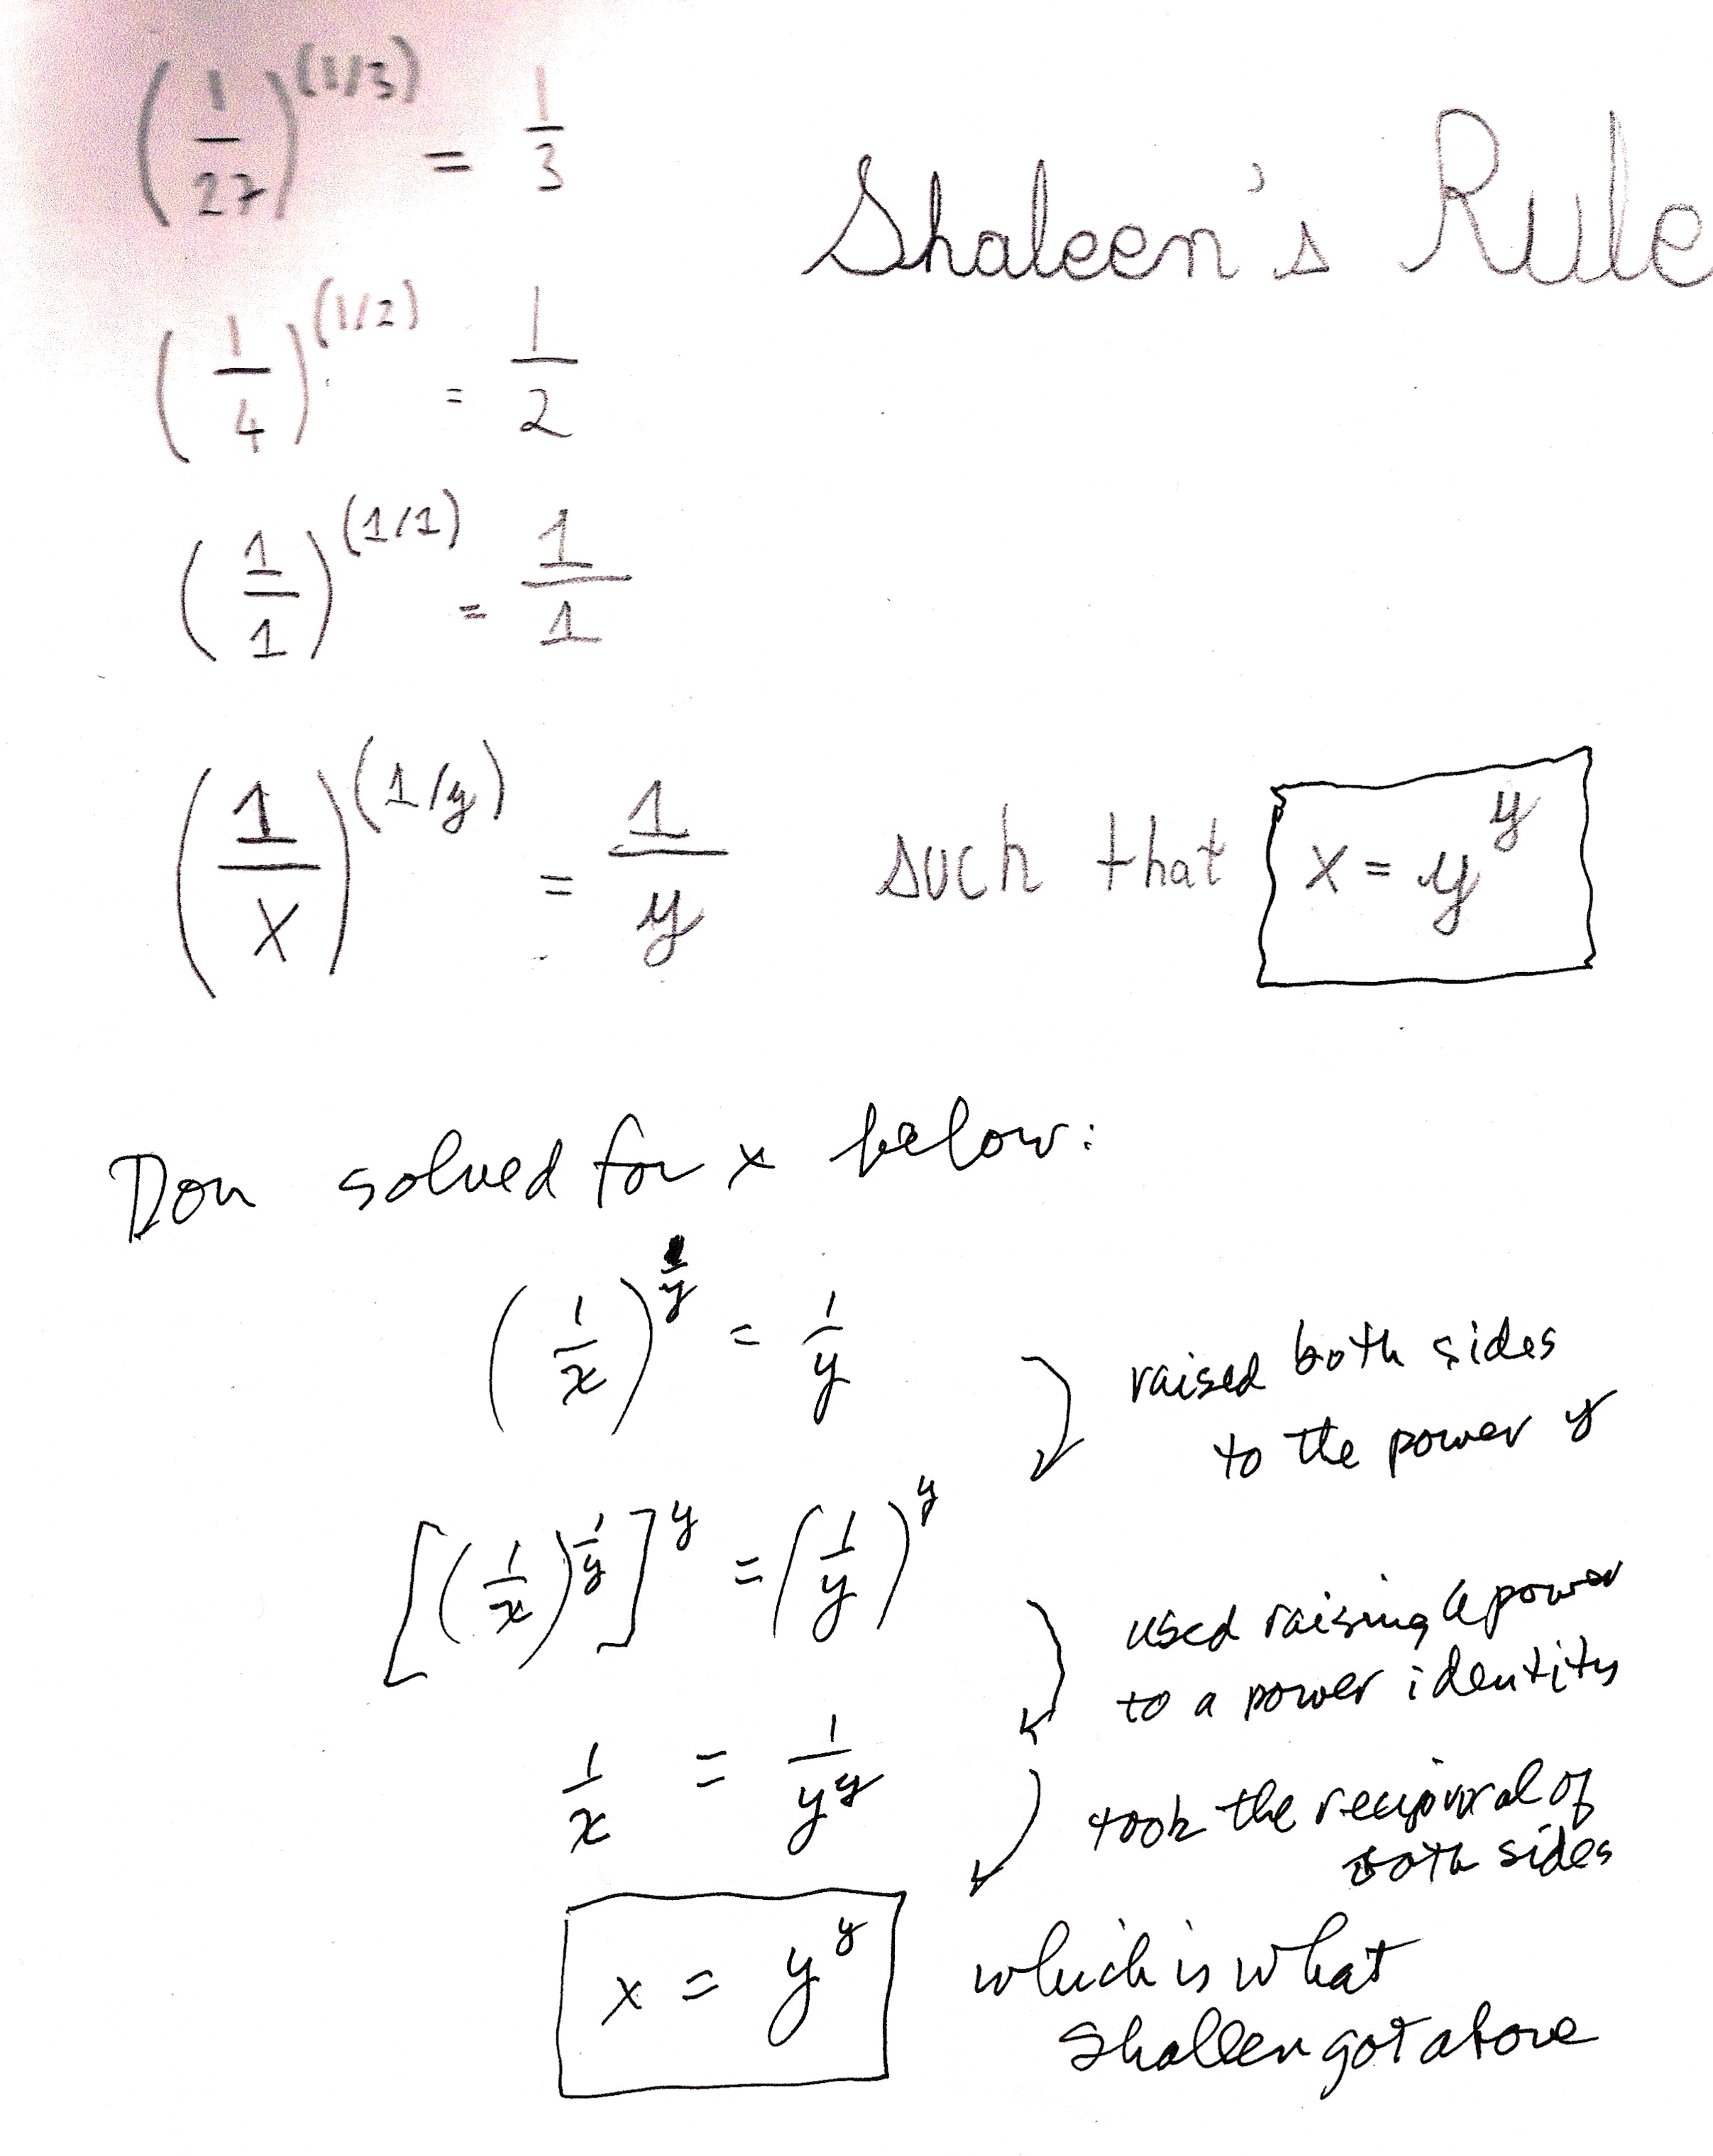 (1/27)^(1/3) = 1/3
Shaleen's Rule
(1/4)^(1/2) = 1/2
(1/1)^(1/1) = 1/1
(1/x)^(1/y) = 1/y such that x = y^y
Don solved for x below:
(1/x)^(1/y) = 1/y
raised both sides
to the power y
[(1/x)^(1/y)]^y = (1/y)^y
used raising a power
to a power identity
1/x = 1/y^y
took the reciprocal of
both sides
x = y^y
which is what
Shaleen got above